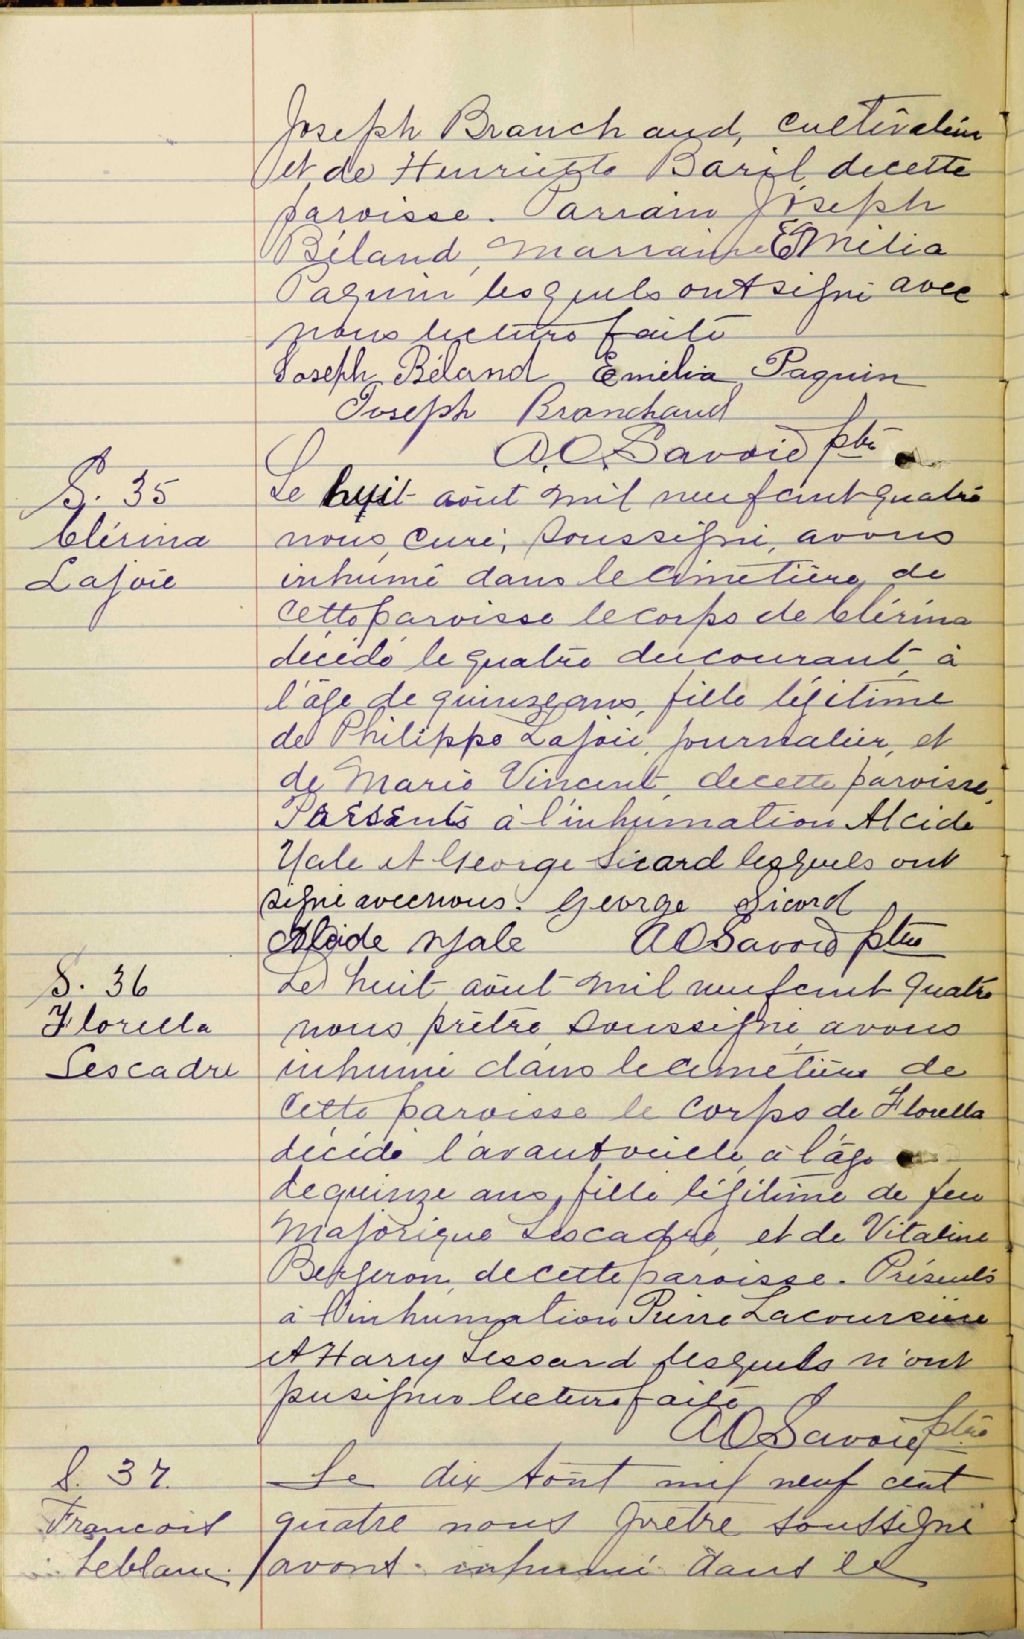 Joseph Branchaud, cultivateur
et de Henriette Baril de cette
paroisse. Parrain Joseph
Béland, marraine Emélia
Paquin lesquels ont signé avec
nous lecture faite
Joseph Béland Emélia Paquin
Joseph Branchaud
A.O. Savoie ptre
S. 35
Clérina
Lajoie
Le huit août mil neuf cent quatre
nous, curé, soussigné, avons
inhumé dans le cimetière de
cette paroisse le corps de Clérina
décédé le quatre du courant à
l'âge de quinze ans, fille légitime
de Philippe Lajoie, journalier, et
de Marie Vincent, de cette paroisse,
Présents à l'inhumation Alcide
Yale et George Sicard lesquels ont
signé avec nous. George Sicard
Alcide Yale A O Savoie ptre
S. 36
Florella
Lescadre
Le huit août mil neuf cent quatre
nous, prêtre, soussigné, avons
inhumé dans le cimetière de
cette paroisse le corps de Florella
décédé l'avant veille, à l'âge
de quinze ans, fille légitime de feu
Majorique Lescadre, et de Vitaline
Bergeron, de cette paroisse. Présents
à l'inhumation Pierre Lacoursière
et Harry Lessard lesquels n'ont
pu signer lecture faite
A O Savoie ptre
S. 37.
Francois
Leblanc.
Le dix Août mil neuf cent
quatre nous prêtre soussigné
avons inhumé dans le